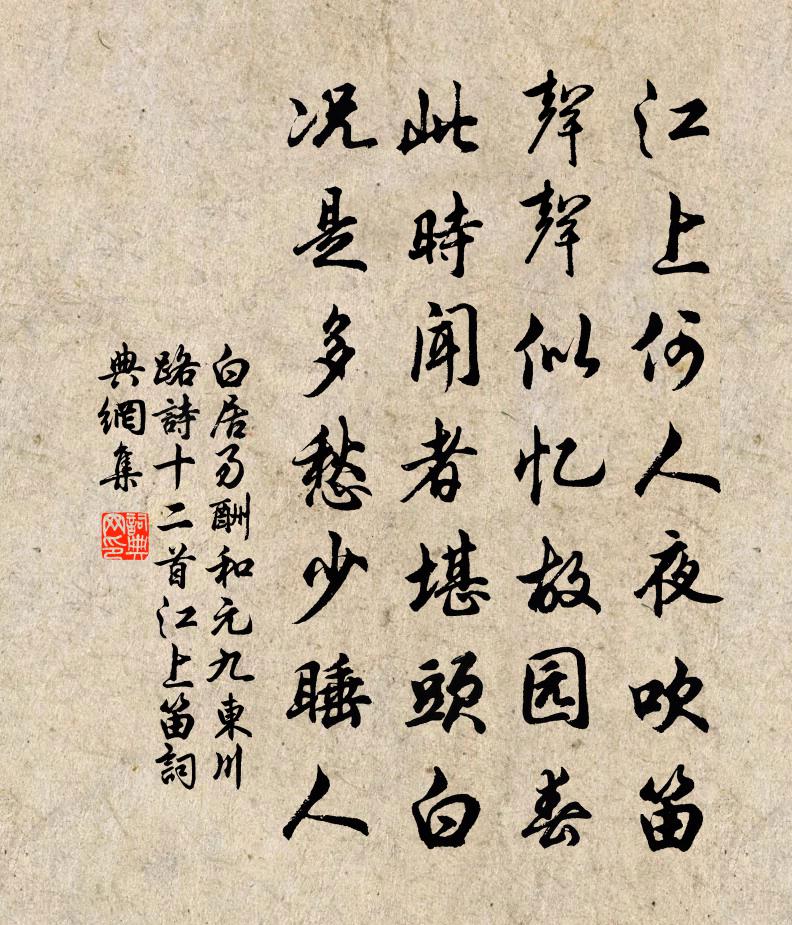 江上何人夜吹笛
聲聲似忆故园春
此時聞者堪頭白
况是多愁少睡人
白居易酬和元九東川
路詩十二首江上笛詞
典網集
詞典网印